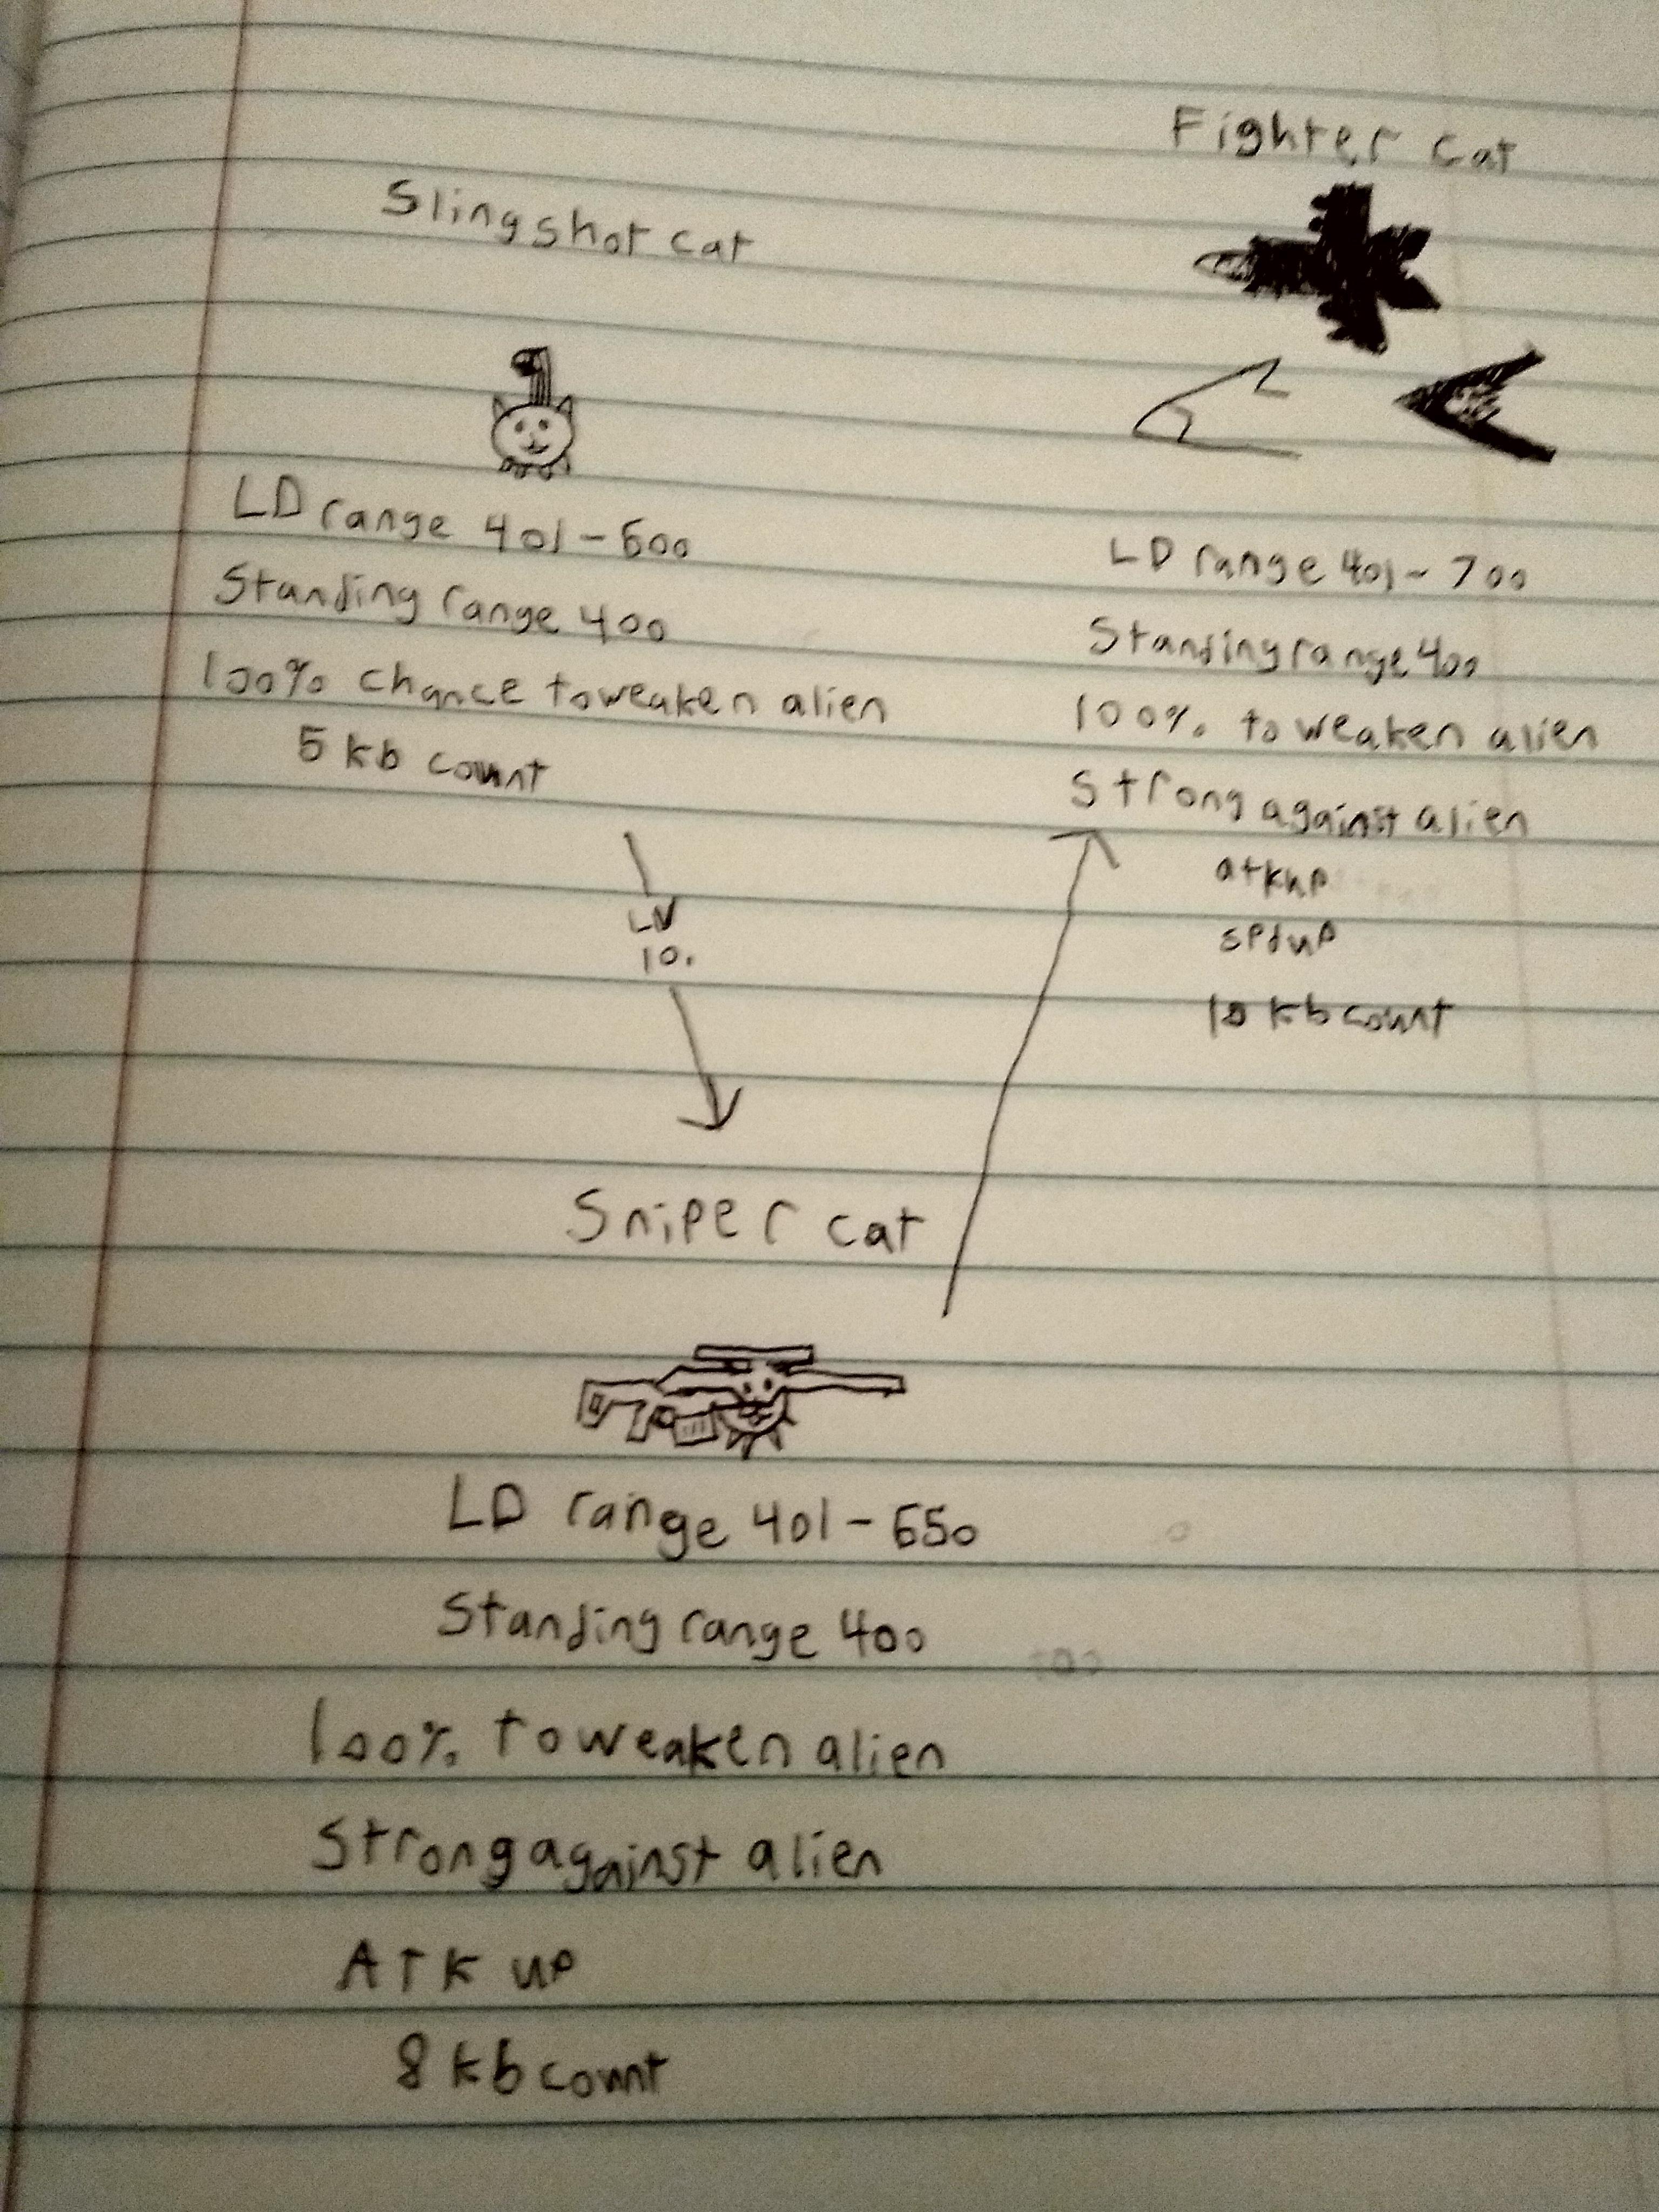 Slingshot cat
LD range 401-600
Standing range 400
100% chance to weaken alien
5 kb count
LV
10.
Sniper cat
LD range 401-650
Standing range 400
100% to weaken alien
Strong against alien
ATK up
8 kb count
Fighter cat
LD range 401-700
Standing range 400
100% to weaken alien
Strong against alien
atkup
spdup
10 kb count